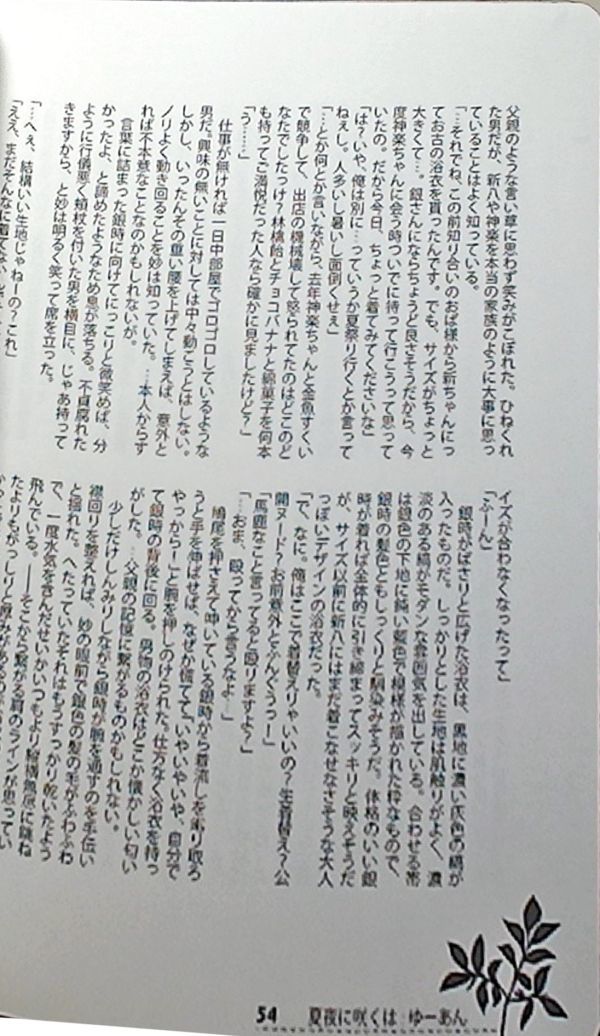 父親のような言い草に思わず笑みがこぼれた。ひねくれ
た男だが、新八や神楽を本当の家族のように大事に思っ
ていることはよく知っている。
「…それでね、この前知り合いのおば様から新ちゃんにっ
てお古の浴衣を貰ったんです。でも、サイズがちょっと
大きくて…。銀さんにならちょうど良さそうだから、今
度神楽ちゃんに会う時ついでに持って行こうって思って
いたの。だから今日、ちょっと着てみてくださいな」
「は？いや、俺は別に…っていうか夏祭り行くとか言って
ねぇし。人多いし暑いし面倒くせぇ」
「…とか何とか言いながら、去年神楽ちゃんと金魚すくい
で競争して、出店の機械壊して怒られてたのはどこのど
なたでしたっけ？林檎飴とチョコバナナと綿菓子を何本
も持ってご満悦だった人なら確かに見ましたけど？」
「う………」
仕事が無ければ一日中部屋でゴロゴロしているような
男だ。興味の無いことに対しては中々動こうとはしない。
しかし、いったんその重い腰を上げてしまえば、意外と
ノリよく動き回ることを妙は知っていた。…本人からす
れば不本意なことなのかもしれないが。
言葉に詰まった銀時に向けてにっこりと微笑めば、分
かったよ、と諦めたようなため息が落ちる。不貞腐れた
ように行儀悪く頬杖を付いた男を横目に、じゃあ持って
きますから、と妙は明るく笑って席を立った。
「…へぇ、結構いい生地じゃねーの？これ」
「ええ、まだそんなに着てないし
イズが合わなくなったって」
「ふーん」
銀時がばさりと広げた浴衣は、黒地に濃い灰色の縞が
入ったものだ。しっかりとした生地は肌触りがよく、濃
淡のある縞がモダンな雰囲気を出している。合わせる帯
は銀色の下地に純い藍色で模様が描かれた粋なもので、
銀時の髪色ともしっくりと馴染みそうだ。体格のいい銀
時が着れば全体的に引き締まってスッキリと映えそうだ
が、サイズ以前に新八にはまだ着こなせなさそうな大人
っぽいデザインの浴衣だった。
「で、なに。俺はここで着替えりゃいいの？生着替え？公
開ヌード？お前意外とふんぐぅっ！」
「馬鹿なこと言ってると殴りますよ？」
「…おま、殴ってから言うなよ…」
鳩尾を押さえて呻いている銀時から着流しを剥ぎ取ろ
うと手を伸ばせば、なぜか慌てて「いやいやいや、自分で
やっから！」と腕を押しのけられた。仕方なく浴衣を持っ
て銀時の背後に回る。男物の浴衣はどこか懐かしい匂い
がした。…父親の記憶に繋がるものかもしれない。
少しだけしんみりしながら銀時が腕を通すのを手伝い
襟回りを整えれば、妙の眼前で銀色の髪の毛がふわふわ
と揺れた。へたっていたそれはもうすっかり乾いたよう
で、一度水気を含んだせいかいつもより縦横無尽に跳ね
飛んでいる。――そこから繋がる肩のラインが思ってい
たよりもがっしりと厚みが
54 夏夜に咲くは ゆーあん